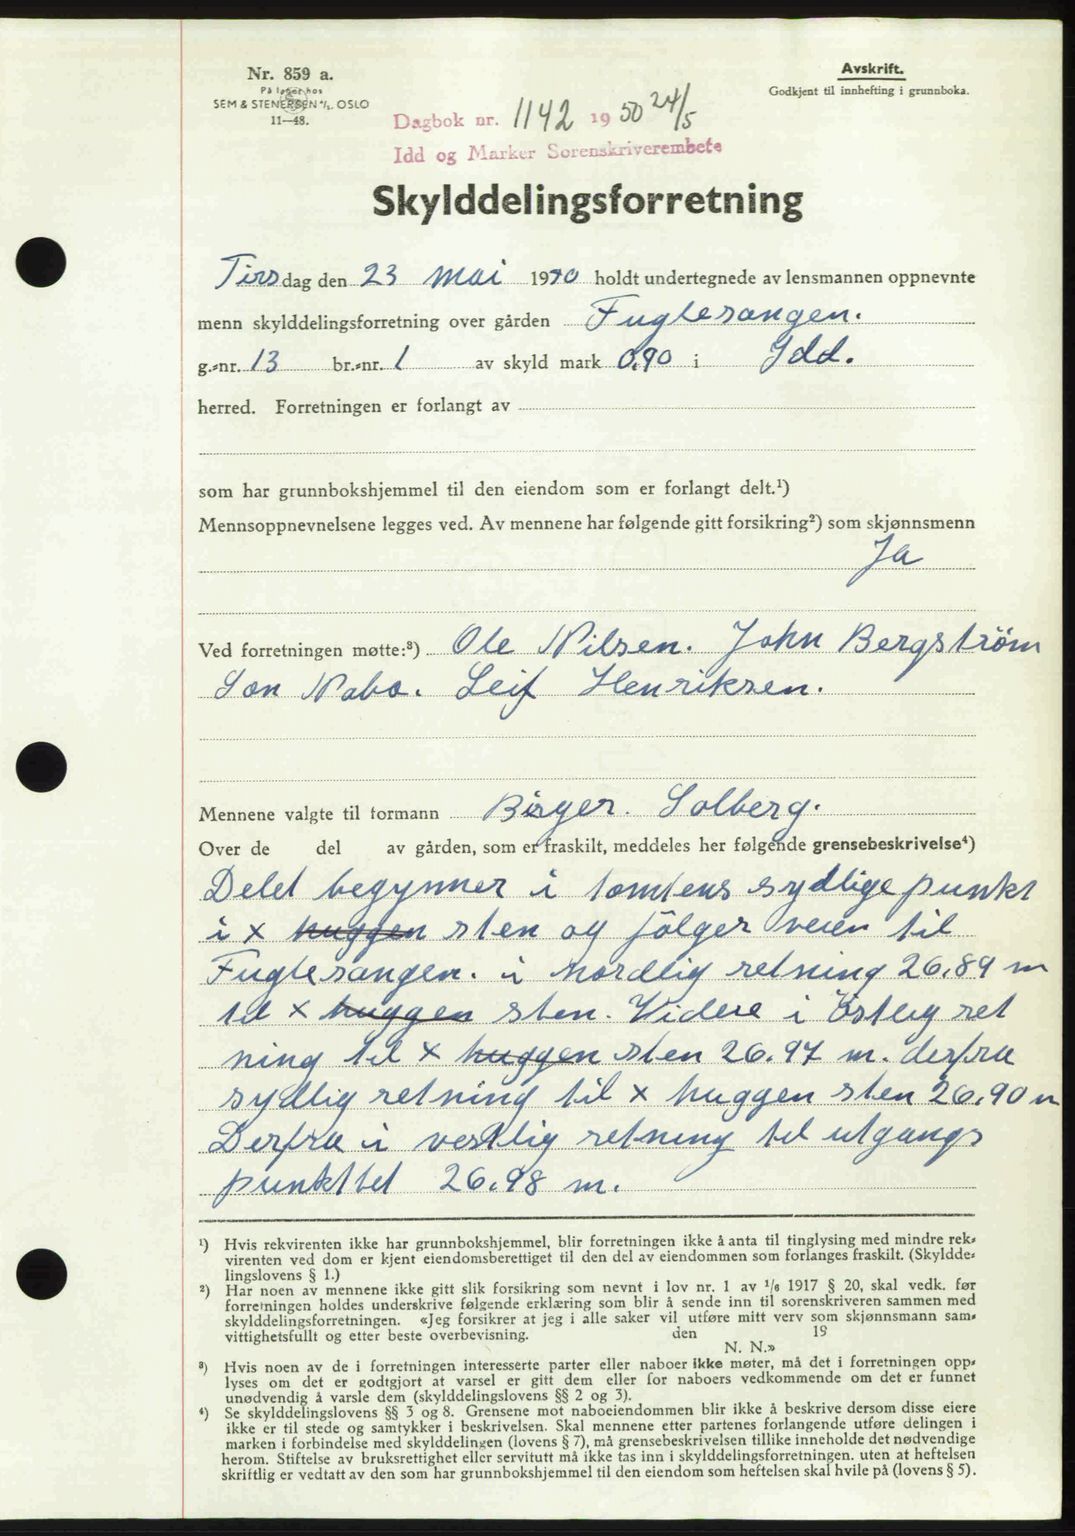 Nr. 859 a.
På lager hos
SEM & STENERSEN A/S. OSLO
11—48.
Avskrift.
Godkjent til innhefting i grunnboka.
Dagbok nr. 1142 1950 24/5
Idd og Marker Sorenskriverembete
Skylddelingsforretning
Tirsdag den 23 mai 1950 holdt undertegnede av lensmannen oppnevnte
menn skylddelingsforretning over gården Fuglesangen.
g.-nr. 13 br.-nr. 1 av skyld mark 0,90 i Idd.
herred. Forretningen er forlangt av
som har grunnbokshjemmel til den eiendom som er forlangt delt.¹)
Mennsoppnevnelsene legges ved. Av mennene har følgende gitt forsikring²) som skjønnsmenn
Ja
Ved forretningen møtte:³) Ole Nilsen. John Bergström
Son Nabo. Leif Henriksen.
Mennene valgte til formann Birger. Solberg.
Over de del av gården, som er fraskilt, meddeles her følgende grensebeskrivelse⁴)
Delet begynner i tomtens sydlige punkt
i x huggen sten og fölger veien til
Fuglesangen. i nordlig retning 26,89 m
til x huggen sten. Videre i östlig ret
ning til x huggen sten 26,97 m. derfra
sydlig retning til x huggen sten 26,90 m
Derfra i vestlig retning til utgangs
punktet 26,98 m.
¹) Hvis rekvirenten ikke har grunnbokshjemmel, blir forretningen ikke å anta til tinglysing med mindre rek-
virenten ved dom er kjent eiendomsberettiget til den del av eiendommen som forlanges fraskilt. (Skyldde-
lingslovens § 1.)
²) Har noen av mennene ikke gitt slik forsikring som nevnt i lov nr. 1 av 1/6 1917 § 20, skal vedk. før
forretningen holdes underskrive følgende erklæring som blir å sende inn til sorenskriveren sammen med
skylddelingsforretningen. «Jeg forsikrer at jeg i alle saker vil utføre mitt verv som skjønnsmann sam-
vittighetsfullt og etter beste overbevisning. den 19
N. N.»
³) Hvis noen av de i forretningen interesserte parter eller naboer ikke møter, må det i forretningen opp-
lyses om det er godtgjort at varsel er gitt dem eller for naboers vedkommende om det er funnet
unødvendig å varsle dem (skylddelingslovens §§ 2 og 3).
⁴) Se skylddelingslovens §§ 3 og 8. Grensene mot naboeiendommen blir ikke å beskrive dersom disse eiere
ikke er til stede og samtykker i beskrivelsen. Skal mennene etter partenes forlangende utføre delingen i
marken i forbindelse med skylddelingen (lovens § 7), må grensebeskrivelsen tillike inneholde det nødvendige
herom. Stiftelse av bruksrettighet eller servitutt må ikke tas inn i skylddelingsforretningen. uten at heftelsen
skriftlig er vedtatt av den som har grunnbokshjemmel til den eiendom som heftelsen skal hvile på (lovens § 5).